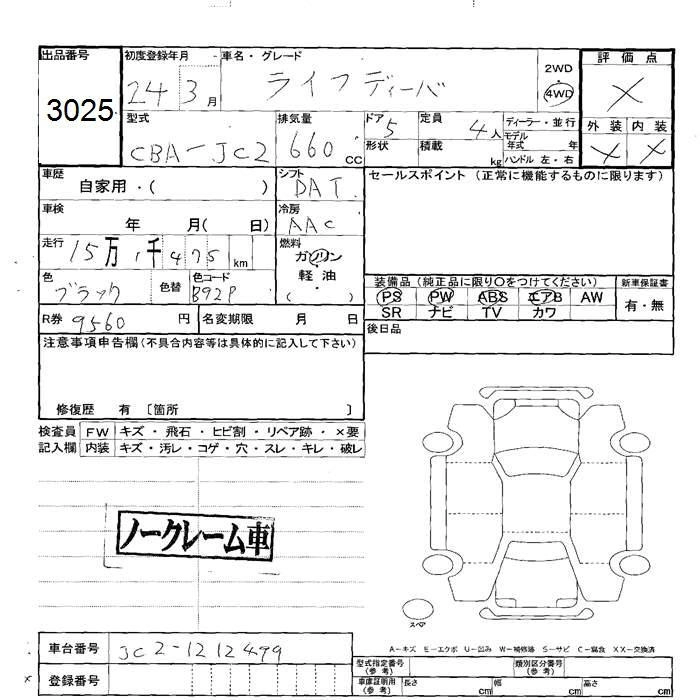 出品番号 初度登録年月 車名・グレード 2WD 評価点
3025 24 3月 ライフディーバ 4WD ×
型式 排気量 ドア 5 定員 4人 ディーラー・並行 外装 内装
CBA-JC2 660 CC 形状 積載 kg モデル年式 年 × ×
ハンドル 左・右
車歴 自家用・( ) シフト DAT セールスポイント (正常に機能するものに限ります)
車検 年 月( 日) 冷房 AAC
走行 15万 1千475 km 燃料 ガソリン
軽・油
色 ブラック 色替 色コード B92P ( )
装備品(純正品に限り○をつけてください) 新車保証書
PS PW ABS エアB AW 有・無
SR ナビ TV カワ
R券 9560 円 名変期限 月 日 後日品
注意事項申告欄(不具合内容等は具体的に記入して下さい)
修復歴 有 〔箇所 〕
検査員 FW キズ・飛石・ヒビ割・リペア跡・×要
記入欄 内装 キズ・汚レ・コゲ・穴・スレ・キレ・破レ
ノークレーム車
スペア
A-キズ E-エクボ U-凹み W-補修跡 S-サビ C-腐食 XX-交換済
車台番号 JC2-1212499 型式指定番号(参考) 類別区分番号(参考)
登録番号 車庫証明用(参考) 長さ cm 幅 cm 高さ cm